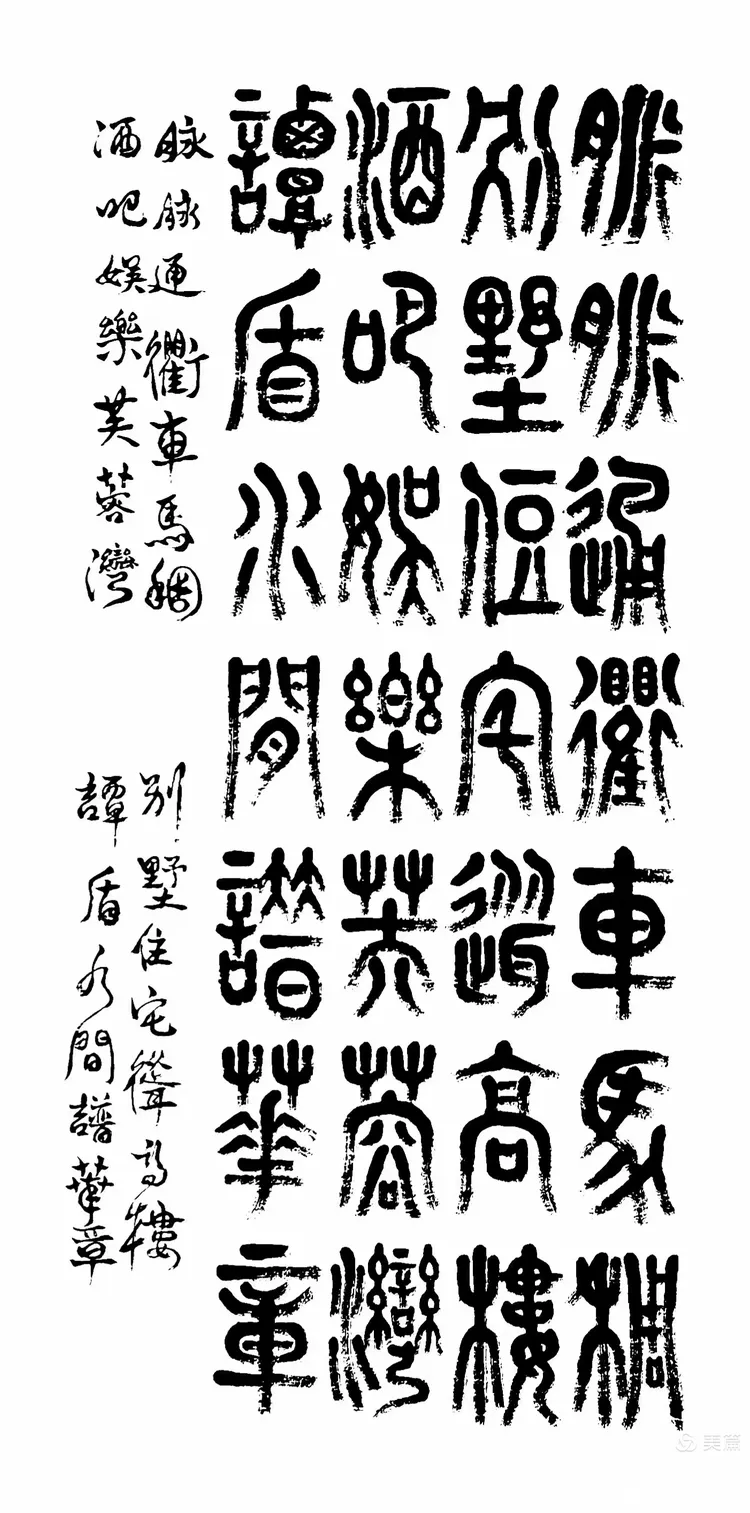 脈脈通衢車馬稠
別墅住宅聳高樓
酒吧娛樂芙蓉灣
譚盾水間譜華章
脉脉通衢車馬稠
別墅住宅聳高樓
酒吧娛樂芙蓉灣
譚盾水間譜華章
美篇